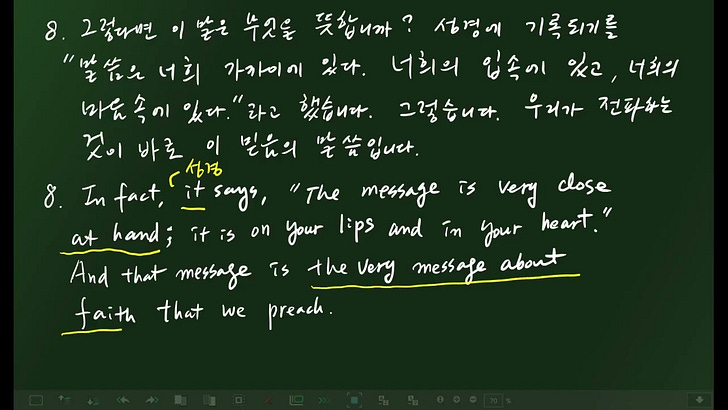 8. 그렇다면 이 말은 무엇을 뜻합니까? 성경에 기록되기를
"말씀은 너희 가까이에 있다. 너희의 입속에 있고, 너희의
마음속에 있다."라고 했습니다. 그렇습니다. 우리가 전파하는
것이 바로 이 믿음의 말씀입니다.
성경
8. In fact, it says, "The message is very close
at hand; it is on your lips and in your heart."
And that message is the very message about
faith that we preach.
70 %